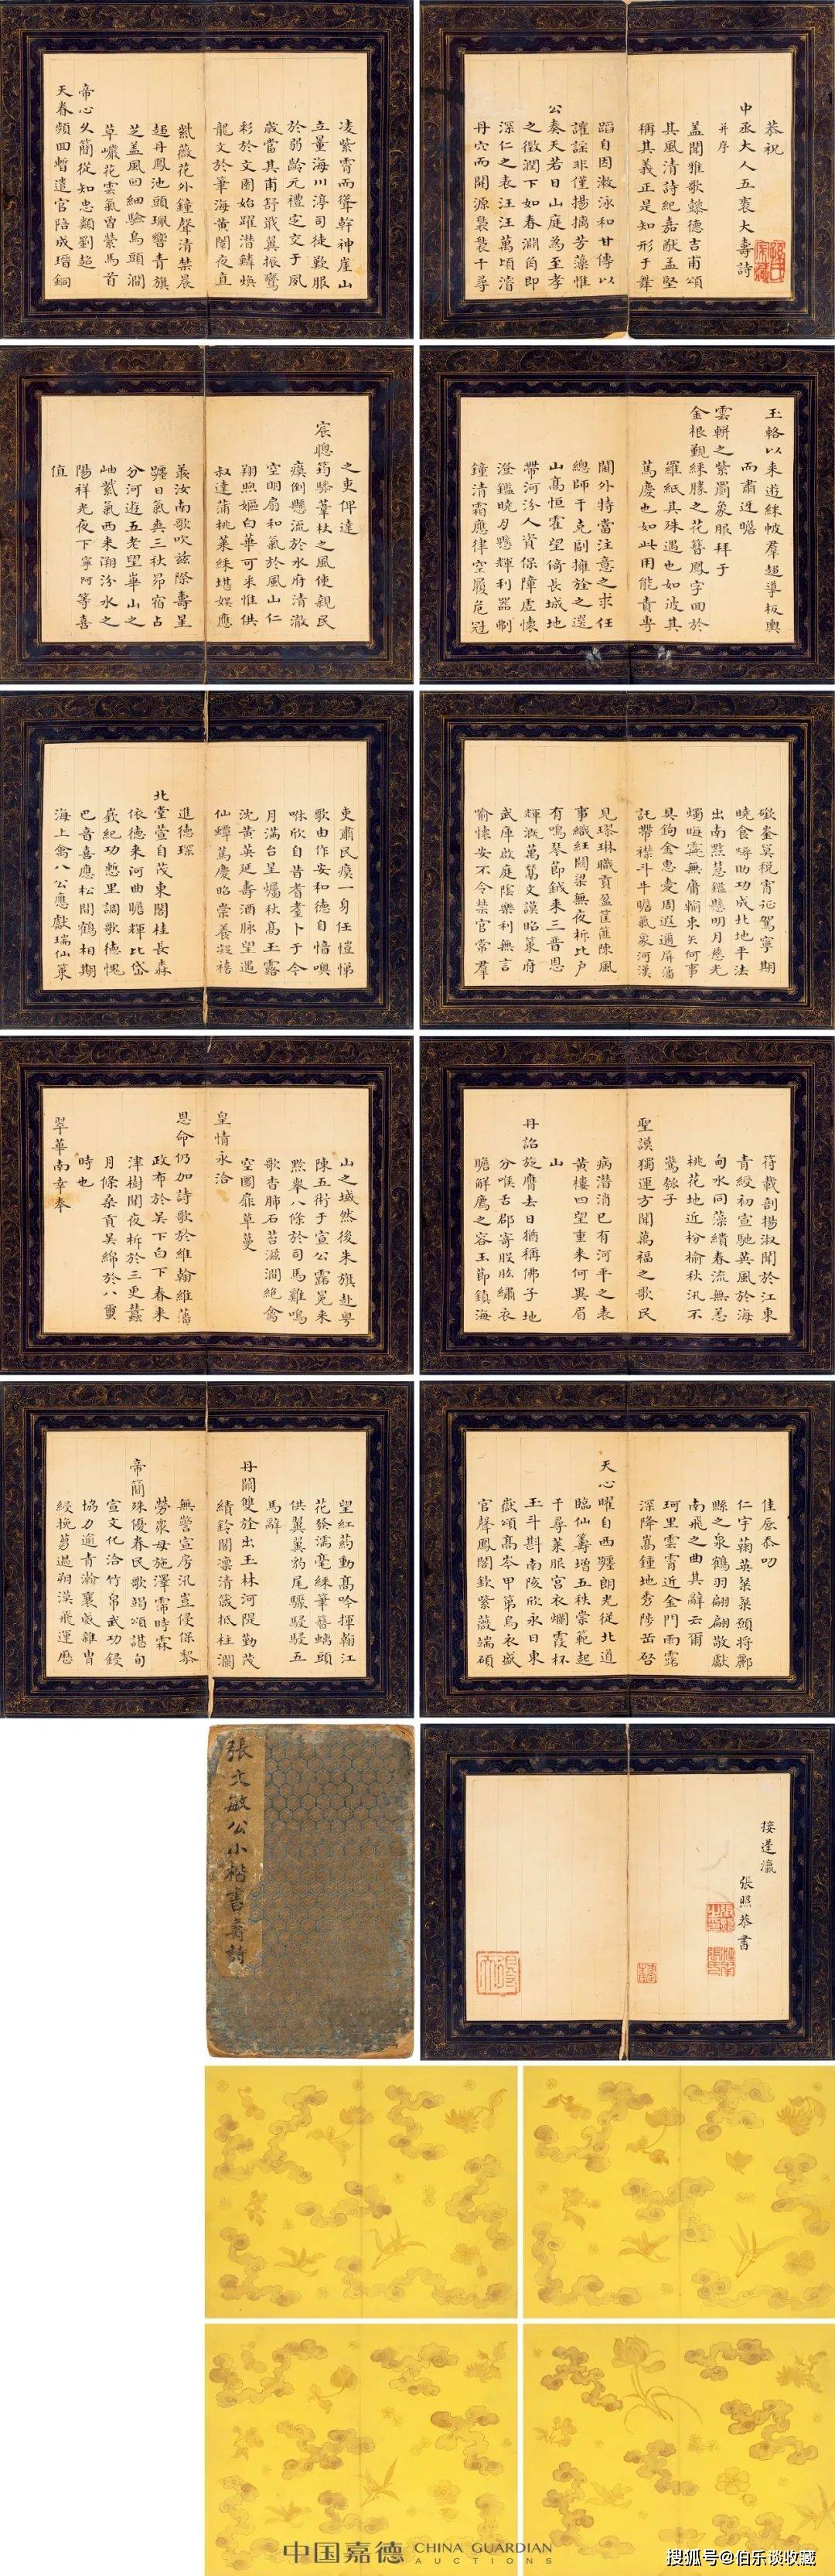 恭祝
中丞大人五袠大壽詩
并序
蓋聞雅歌懿德吉甫頌
其風清詩紀嘉猷孟堅
稱其義正是知形于舞
蹈自因漱泳和甘傳以
讙謡非僅揚摛芳藻惟
公奏天若日山庭為至孝
之徵潤下如春澗即
深仁之表汪汪萬頃濬
丹穴而開源褧褧千尋
凌紫霄而聳幹神崖山
立量海川渟司徒歎服
於弱齡元禮定交于夙
歲當其甫舒戢翼振鸞
彩於文囿始躍潛鱗煥
龍文於筆海黃閣夜直
紫薇花外鐘聲清禁晨
趨丹鳳池頭珮響青旗
芝蓋風回細驗烏頭澗
草巖花雲氣曾縈馬首
帝心久簡從知忠類劉超
天眷頻回暫遣官陪成瑨銅
玉輅以來遊綵帔群趨導板輿
而肅迓瞻
雲軿之紫罽象服拜于
金根觀綵勝之花簪鳳字回於
羅紙其殊遇也如彼其
篤慶也如此用能貴專
閫外持當注意之求任
總師干克副擁旌之選
山高恒霍望倚長城地
帶河汾人資保障虛懷
澄鑑曉月懸輝利器剸
鐘清霜應律空履危冠
之吏俾達
宸聰筠驂葦杖之風使親民
瘼倒懸流於水府清澈
空明扇和氣於風山仁
翔煦嫗白華可采惟供
叔達蒲桃萊綵堪娛應
義汝南歌吹茲際壽星
躔日氣爽三秋昴宿占
分河遊五老望華山之
岫紫氣西來溯汾水之
陽祥光夜下寧阿等喜
值
磝峚莫稅宵征駕寧期
曉食嘑助功成北地平法
出南黔慧鑑懸明月慈光
燭晦霿無庸輸束矢何事
具鉤金惠愛周遐邇屏藩
託帶襟斗牛瞻氣象河漢
見璆琳職貢盈筐篚陳風
事織紝關梁無夜柝比户
有鳴琴節鉞來三晉恩
輝溉萬舊文謨昭策府
武庫啟庭陰樂利無言
喻懷安不令禁官常羣
吏肅民瘼一身任愷悌
歌由作安和德自愔噢
咻欣自昔耆耋卜于今
月滿台星燭秋高玉露
沈黃英延壽酒脉望遇
仙蟫篤慶昭崇養凝禧
進德琛
北堂萱自茂東閣桂長森
依德来河曲瞻輝比岱
嶔紀功慙里調歌德愧
巴音喜應松間鶴相期
海上禽八公應獻瑞仙菓
符載剖揚淑聞於江東
青綬初宣馳英風於海
甸水同藻繢春流無恙
桃花地近枌榆秋汛不
驚銀子
聖謨獨運方聞萬福之歌民
病潛消已有河平之表
黃樓四望重来何異眉
山
丹詔旋膺去日猶稱佛子地
分喉舌郡寄股肱繡衣
瞻解廌之容玉節鎮海
山之域然後朱旗赴粤
陳五術于宣公露冕来
黔舉八條於司馬雞鳴
歌杳肺石苔滋澗絕禽
空圜扉草蔓
皇情永洽
恩命仍加詩歌於維翰維藩
政布於吴下白下春来
津樹聞夜柝於三更蠶
月條桑貢吴綿於八璽
時也
翠華南幸奉
佳辰忝叨
仁宇藹英蕖蕖願將酈
縣之泉鶴羽翩翩敬獻
南飛之曲其辭云爾
珂里雲霄近金門雨露
深降嵩鍾地秀陟岳啓
天心曜自西躔朗光從北道
臨仙籌增五秩崇範起
千尋萊服宮衣爛霞杯
玉斗斟南陔欣永日東
嶽頌高岑甲第烏衣盛
官聲鳳閣欽紫薇端碩
望紅葯動高吟揮翰江
花發濡毫綵筆簪螭頭
供翼翼豹尾驟駸駸五
馬辭
丹闕雙旌出玉林河隄勤茂
績鈴閣凛清箴抵柱瀾
無警宣房汛豈侵保黎
勞衆毋施澤霈時霖
帝簡殊優眷民歌竭頌諶旬
宣文化洽竹帛武功鋟
協力遄青瀚襄威雜冑
綅挽芻過朔漠飛運歷
接蓬瀛
張照恭書
張文敏公小楷書壽詩
中国嘉德 CHINA GUARDIAN
AUCTIONS
搜狐号@伯乐谈收藏